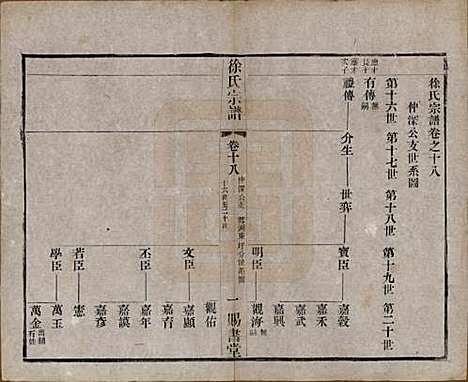 徐氏宗譜卷之十八
仲深公支世系圖
第十六世 第十七世 第十八世 第十九世 第二十世
應才長子 有傳 無嗣
應才次子 禮傳 介生 世葬 寶臣 嘉穀
嘉禾
嘉武
嘉興
明臣 觀海 無嗣
徐氏宗譜 卷十八 仲深公支 十六世至二十世 一 賜書堂
觀佑
文臣 嘉顯
嘉育
丕臣 嘉年
嘉謨
嘉彥
若臣 憲
學臣 萬玉
萬金